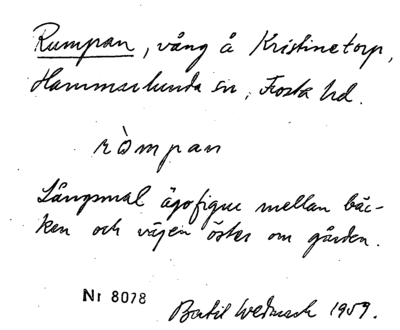 Rumpan, vång å Kristinetorp,
Hammarlunda sn, Frosta hd.
ròmpan
Långsmal ägofigur mellan bäc-
ken och vägen öster om gården.
Nr 8078
Bertil Wedmark 1959.